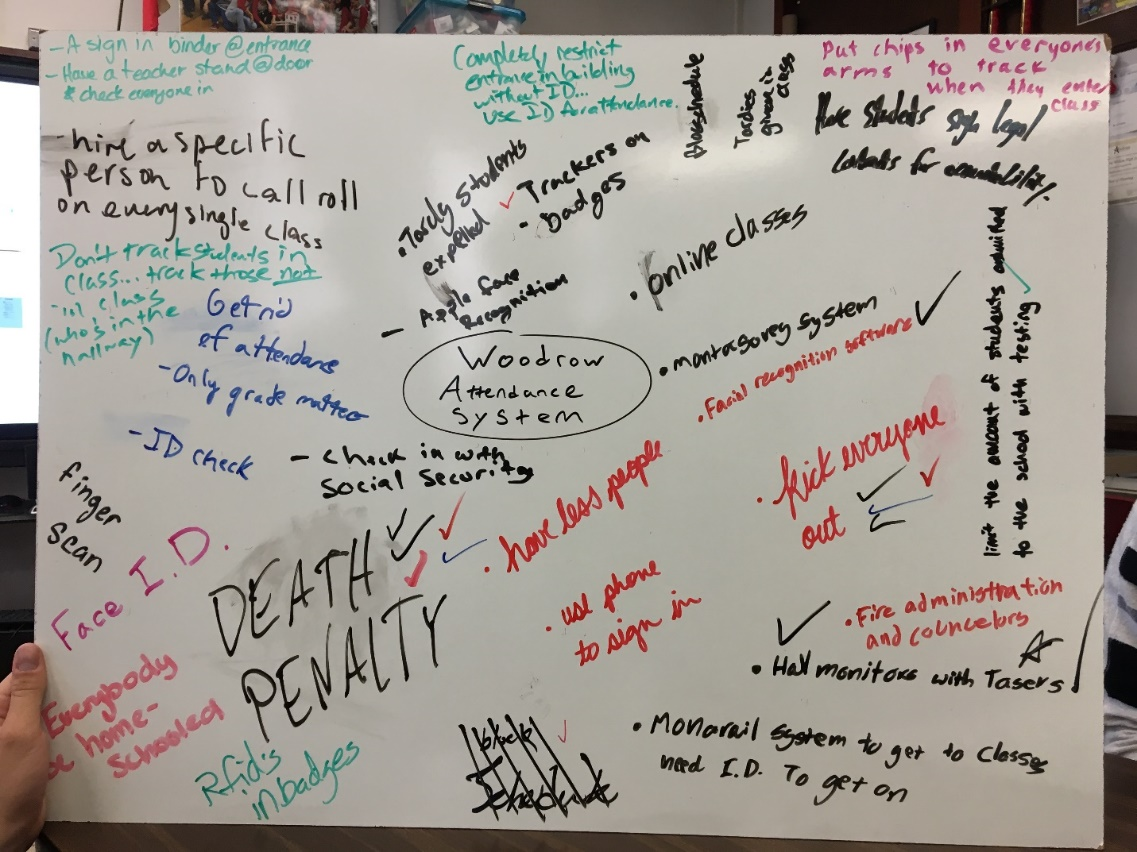 - A sign in binder @ entrance
- Have a teacher stand @ door
& check everyone in
Completely restrict
entrance in building
without ID...
use ID for attendance.
Tardies
given in
class
Put chips in everyone's
arms to track
when they enter
class
Have students sign legal
for
- hire a specific
person to call roll
on every single class
Don't track students in
class... track those not
- in class
(who's in the
hallway)
• Tardy students
expelled
- Trackers on
- badges
- Apple face
Recognition
• online classes
Get rid
of attendance
- Only grade matters
- ID check
Woodrow
Attendance
System
• montasorey system
• Facial recognition software
limit the amount of students admitted
to the school with testing
- check in with
social security
finger
scan
Face I.D.
DEATH
PENALTY
• have less people
• kick everyone
out
• use phone
to sign in
• Fire administration
and councelors
• Hall monitors with Tasers
Everybody
be home-
schooled
Rfid's
in badges
block
Schedule
• Monarail system to get to classes
need I.D. To get on